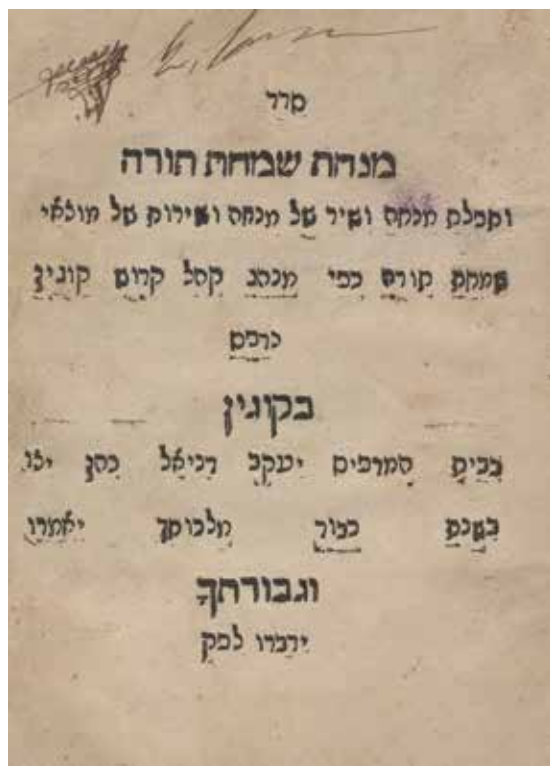 סדר
מנחת שמחת תורה
ותפלת מנחה ושיר של מנחה ושירות של מוצאי
שמחת תורה כפי מנהג קהל קדוש קוגין
נדפס
בקוגין
בבית המדפיס יעקב דניאל כהן יצו
בשנת כבוד מלכותך יאמרו
וגבורתך
ידברו לפק